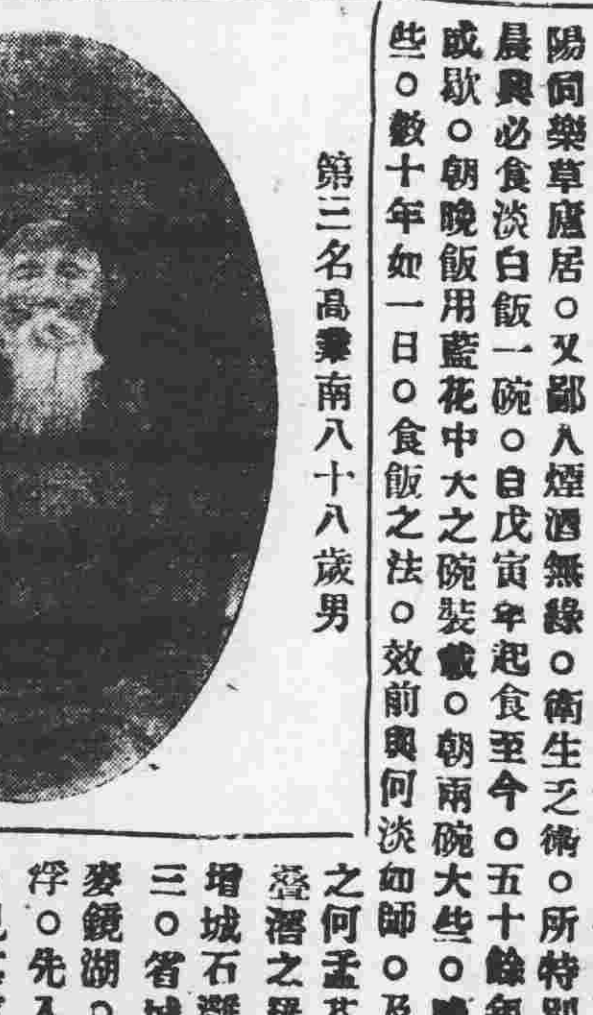 陽同樂草廬居○又鄙人煙酒無緣○衛生乏術○所特別
晨興必食淡白飯一碗○自戊寅年起食至今○五十餘年
或歇○朝晚飯用藍花中大之碗裝載○朝兩碗大些○晚
些○數十年如一日○食飯之法○效前與何淡如師○及
第三名高羣南八十八歲男
之何孟
之
增城石
三○省城
麥鏡湖○
浮○先人